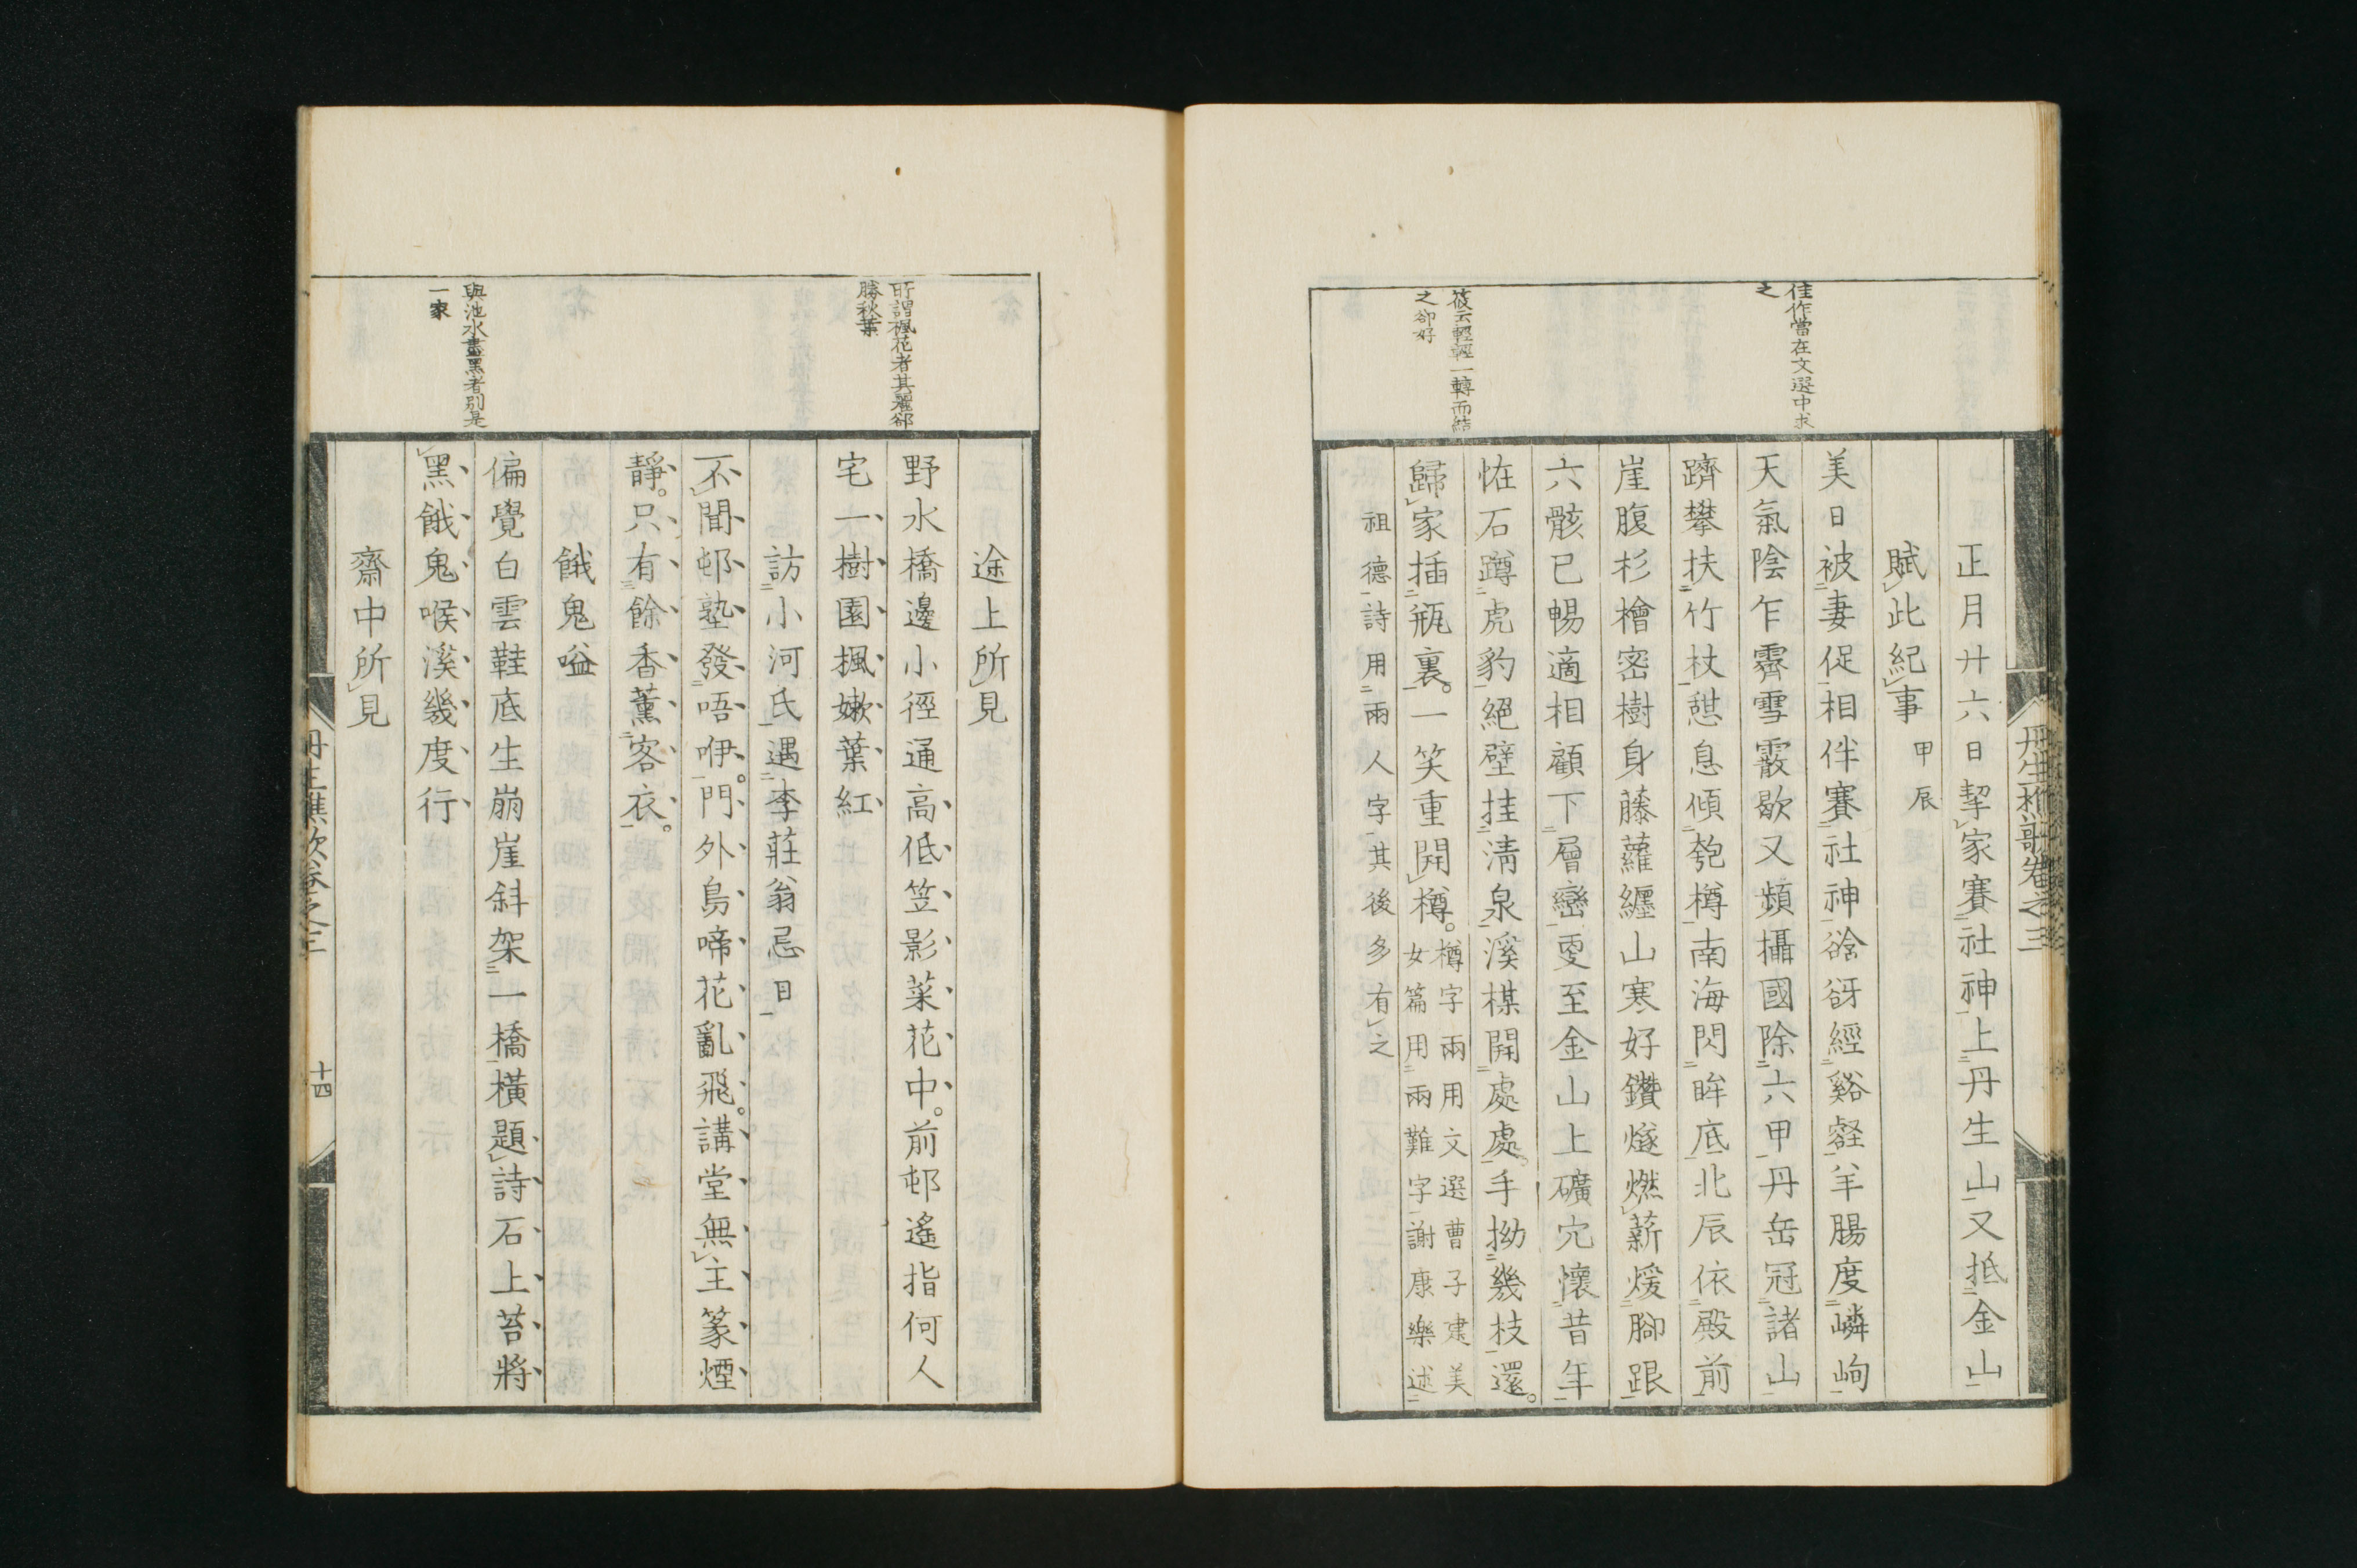 丹生樵歌卷之三
正月廿六日挈家賽社神上丹生山又抵金山
賦此紀事 甲辰
美日被妻促相伴賽社神谽谺經谿壑羊腸度嶙峋
天氣陰乍霽雪霰歇又頻攝國除六甲丹岳冠諸山
躋攀扶竹杖憇息傾匏樽南海閃眸底北辰依殿前
崖腹杉檜密樹身藤蘿纏山寒好鑽燧燃薪煖腳跟
六骸已暢適相顧下層巒更至金山上礦穴懷昔年
恠石蹲虎豹絕壁挂淸泉溪楳開處處手拗幾枝還
歸家插瓶裏一笑重開樽
樽字兩用文選曹子建美
女篇用兩難字謝康樂述
祖德詩用兩人字其後多有之
佳作當在文選中求
之
筱云輕輕一轉而結
之卻好
途上所見
野水橋邊小徑通高低笠影菜花中前邨遙指何人
宅一樹園楓嫰葉紅
訪小河氏遇李莊翁忌日
不聞邨塾發唔咿門外鳥啼花亂飛講堂無主篆煙
靜只有餘香薰客衣
餓鬼嗌
偏覺白雲鞋底生崩崖斜架一橋橫題詩石上苔將
黑餓鬼喉溪幾度行
齋中所見
所謂楓花者其麗卻
勝秋葉
與池水盡黑者別是
一家
丹生樵歌卷之三
十四